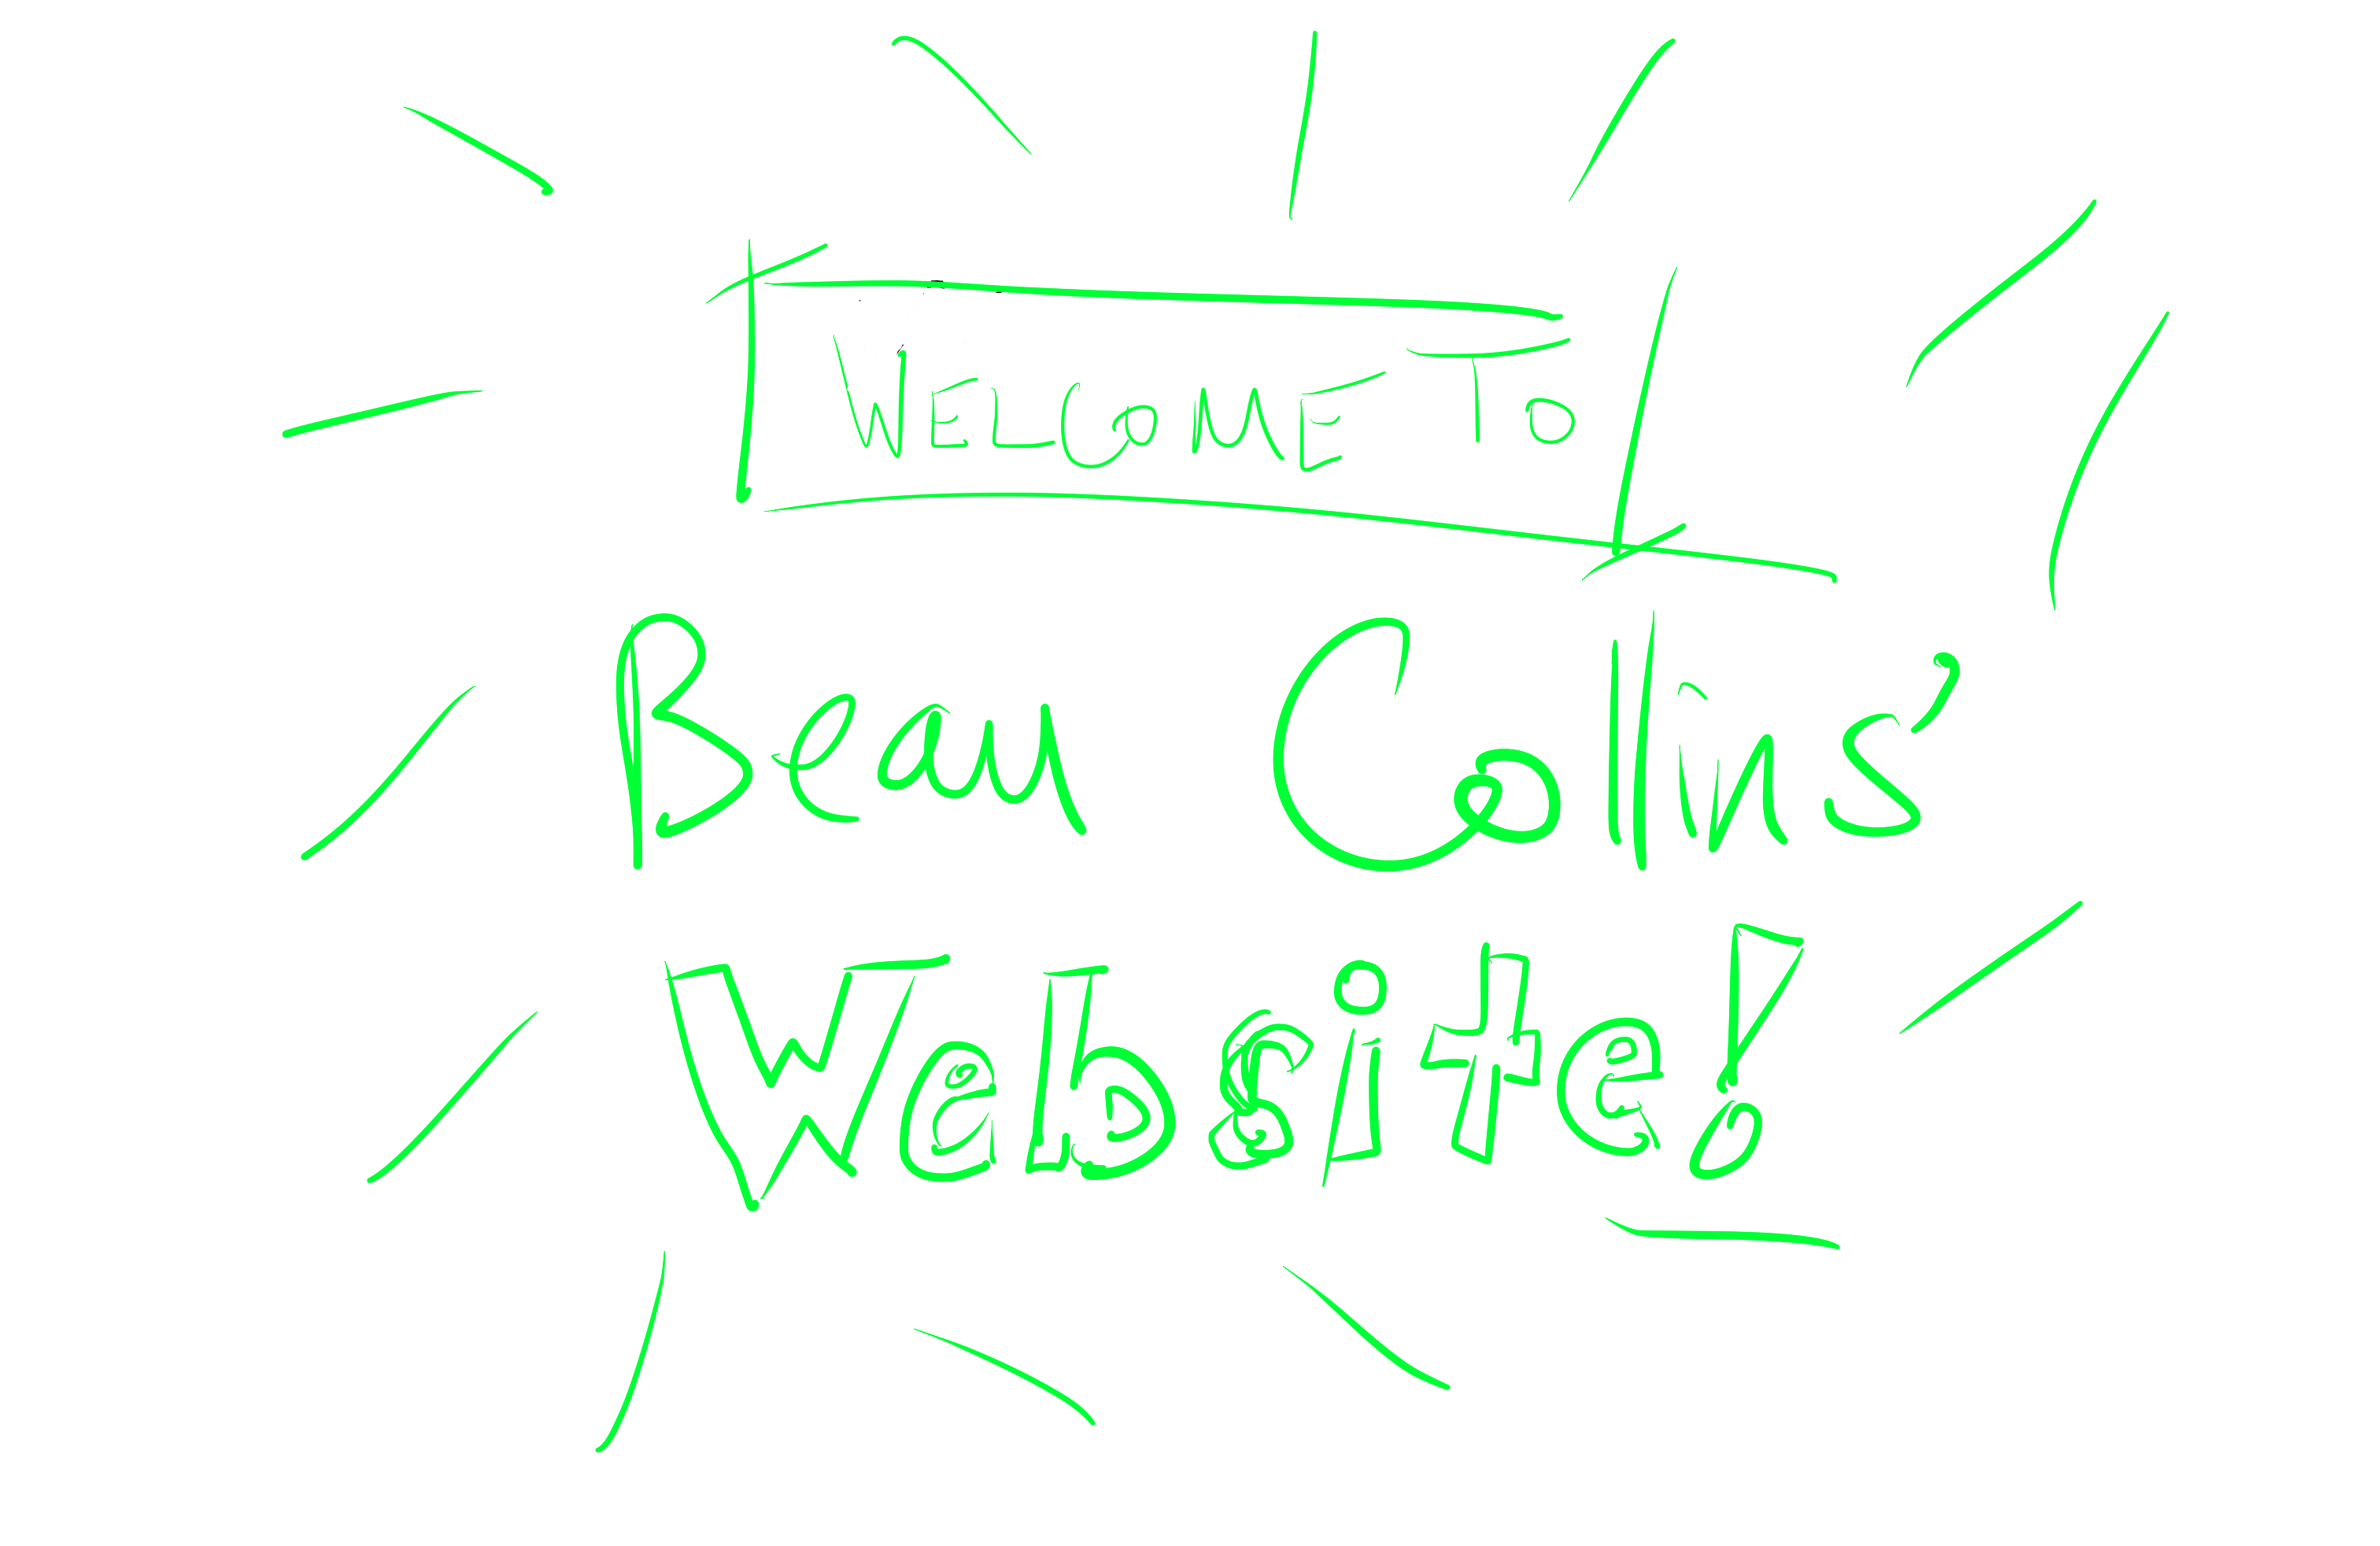 WELCOME TO
Beau Collins'
Website!